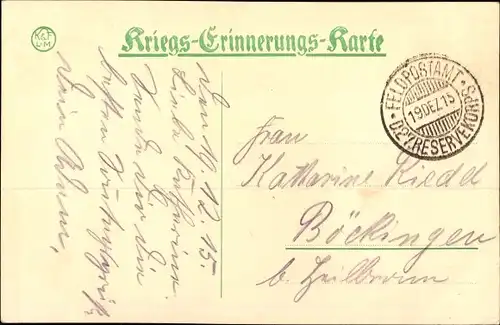 K&F
M
Kriegs-Erinnerungs-Karte
FELDPOSTAMT
19DEZ.15
D27.RESERVEKORPS
Den 19.12.15.
Liebe Katharine
Sende dir die
besten Grüße
Dein
Frau
Katharine Riedel
Böckingen
b. Heilbronn